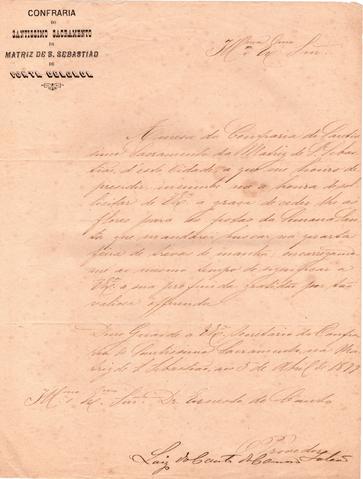 CONFRARIA
DO
SANTISSIMO SACRAMENTO
DA
MATRIZ DE S. SEBASTIÃO
DE
PONTA DELGADA
Ill.mo Exmo Snr.
A meza da Confraria do Santis-
simo Sacramento da Matriz de S. Sebas-
tião, d'esta Cidade, a que me honro de
presidir, incumbe me a honra de so-
licitar de V. Ex.ª a graça de ceder lhe as
flores para
que mandarei buscar na quarta
feira de trevas de manhã, encarregan-
do me ao mesmo tempo de significar a
V. Ex.ª a sua profunda gratidão por tão
valiosa offrenda.
Deus Guarde a V. Ex.ª Secretaria da Confra-
ria do Santissimo Sacramento, na Ma-
triz de S. Sebastião, aos 3 de Abril de 1877
Ill.mo Exmo Snr. Dr. Ernesto do Canto
O Provedor
Luiz do Canto da Camara Falcão